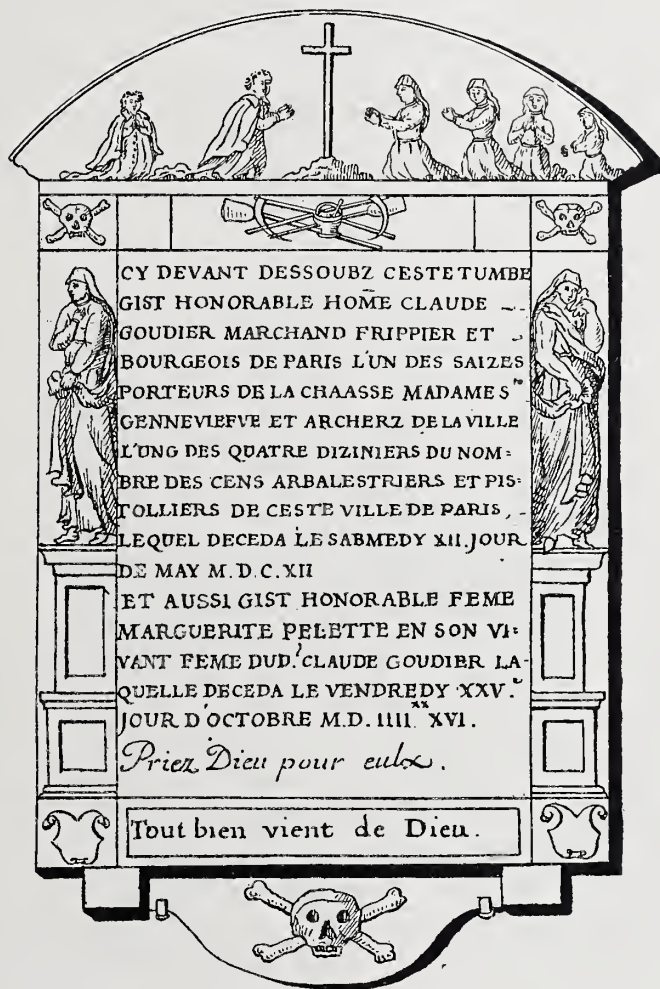 CY DEVANT DESSOUBZ CESTE TUMBE
GIST HONORABLE HOM̄E CLAUDE
GOUDIER MARCHAND FRIPPIER ET
BOURGEOIS DE PARIS L'UN DES SAIZES
PORTEURS DE LA CHAASSE MADAME Sᵗᵉ
GENNEVIEFVE ET ARCHERZ DE LA VILLE
L'UNG DES QUATRE DIZINIERS DU NOM=
BRE DES CENS ARBALESTRIERS ET PIS=
TOLLIERS DE CESTE VILLE DE PARIS,
LEQUEL DECEDA LE SABMEDY XII. JOUR
DE MAY M.D.C.XII
ET AUSSI GIST HONORABLE FEME
MARGUERITE PELETTE EN SON VI=
VANT FEME DUD.ᵗ CLAUDE GOUDIER LA-
QUELLE DECEDA LE VENDREDY XXV.ᵉ
JOUR D'OCTOBRE M.D. IIIIˣˣ XVI.
Priez Dieu pour eulx.
Tout bien vient de Dieu.